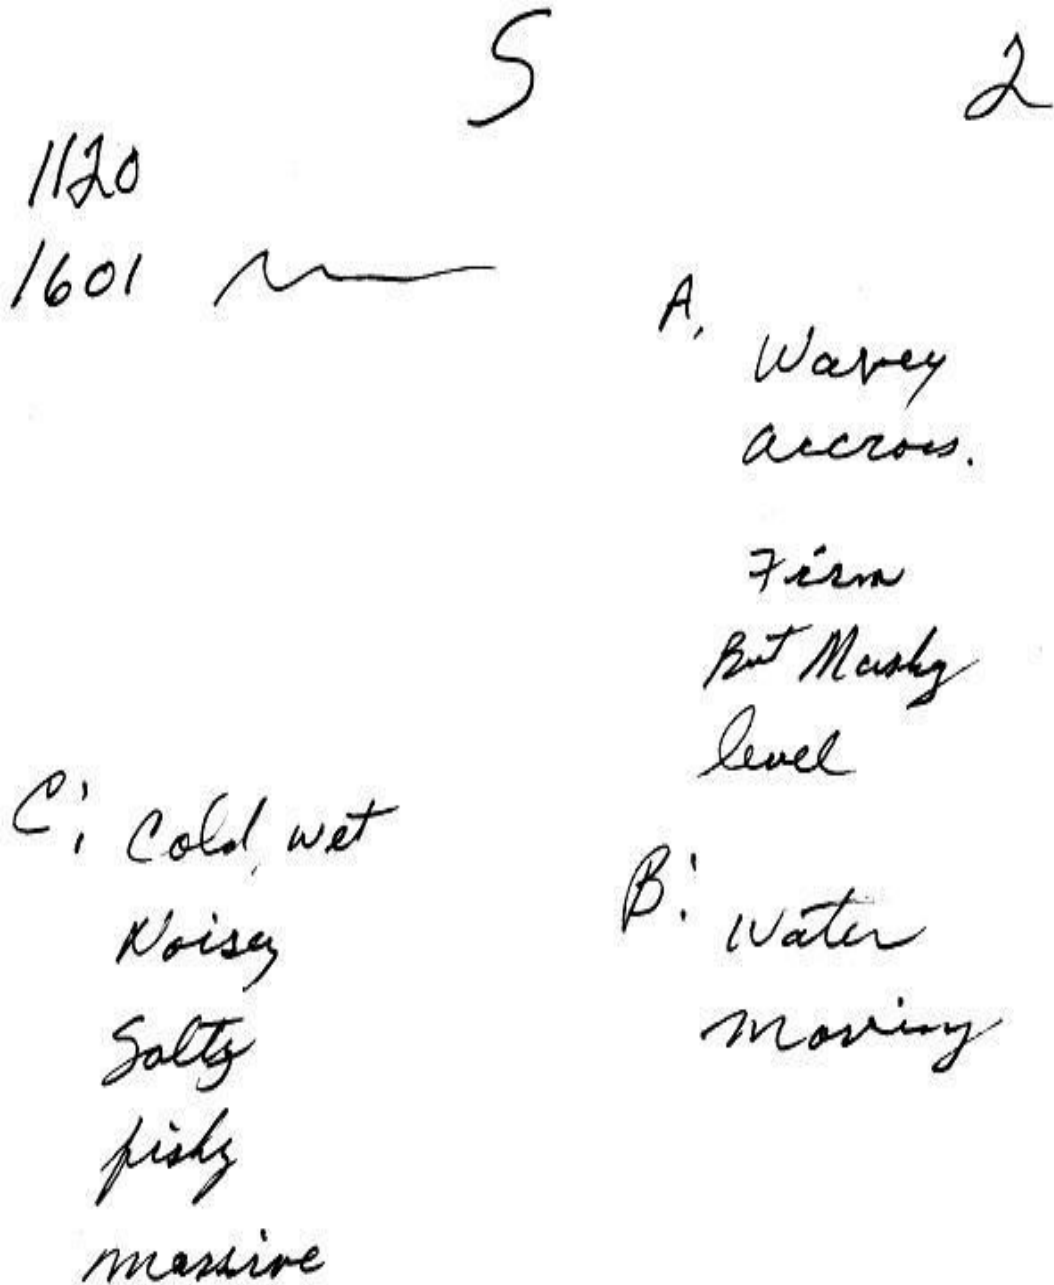 S 2
1120
1601
A,
Wavey
accross.
Firm
But Mushy
level
B:
Water
moving
C:
Cold, wet
Noisey
Salty
fishy
massive